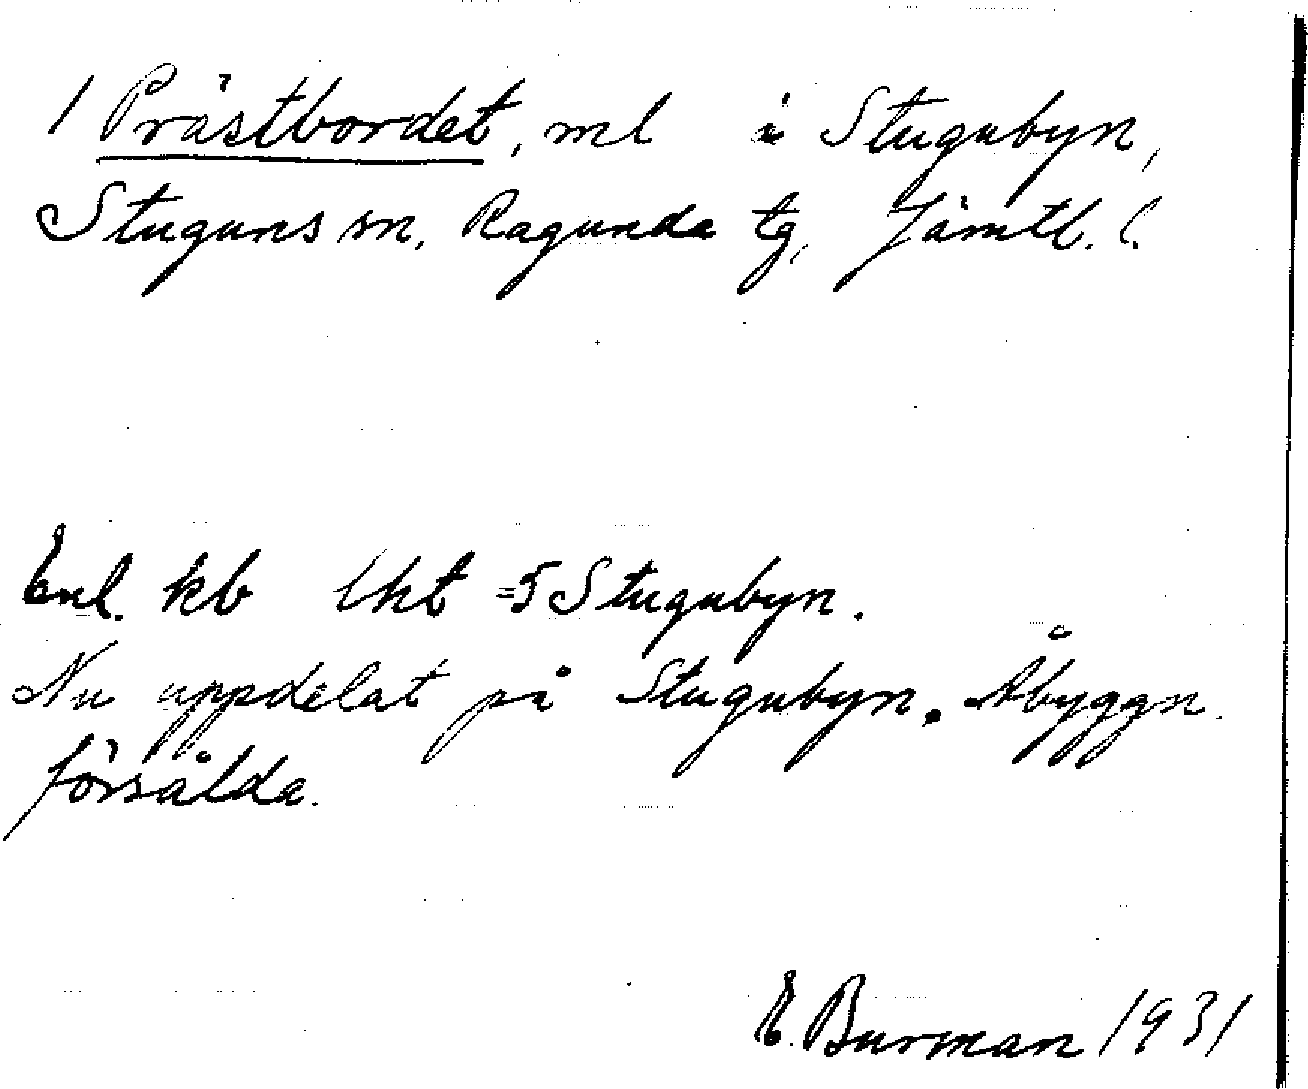 1 Prästbordet, ml i Stugubyn,
Stuguns sn. Ragunda tg, Jämtl. l.
Enl. kb lht =5 Stugubyn.
Nu uppdelat på Stugubyn. Åbyggn.
försålda.
E. Burman 1931